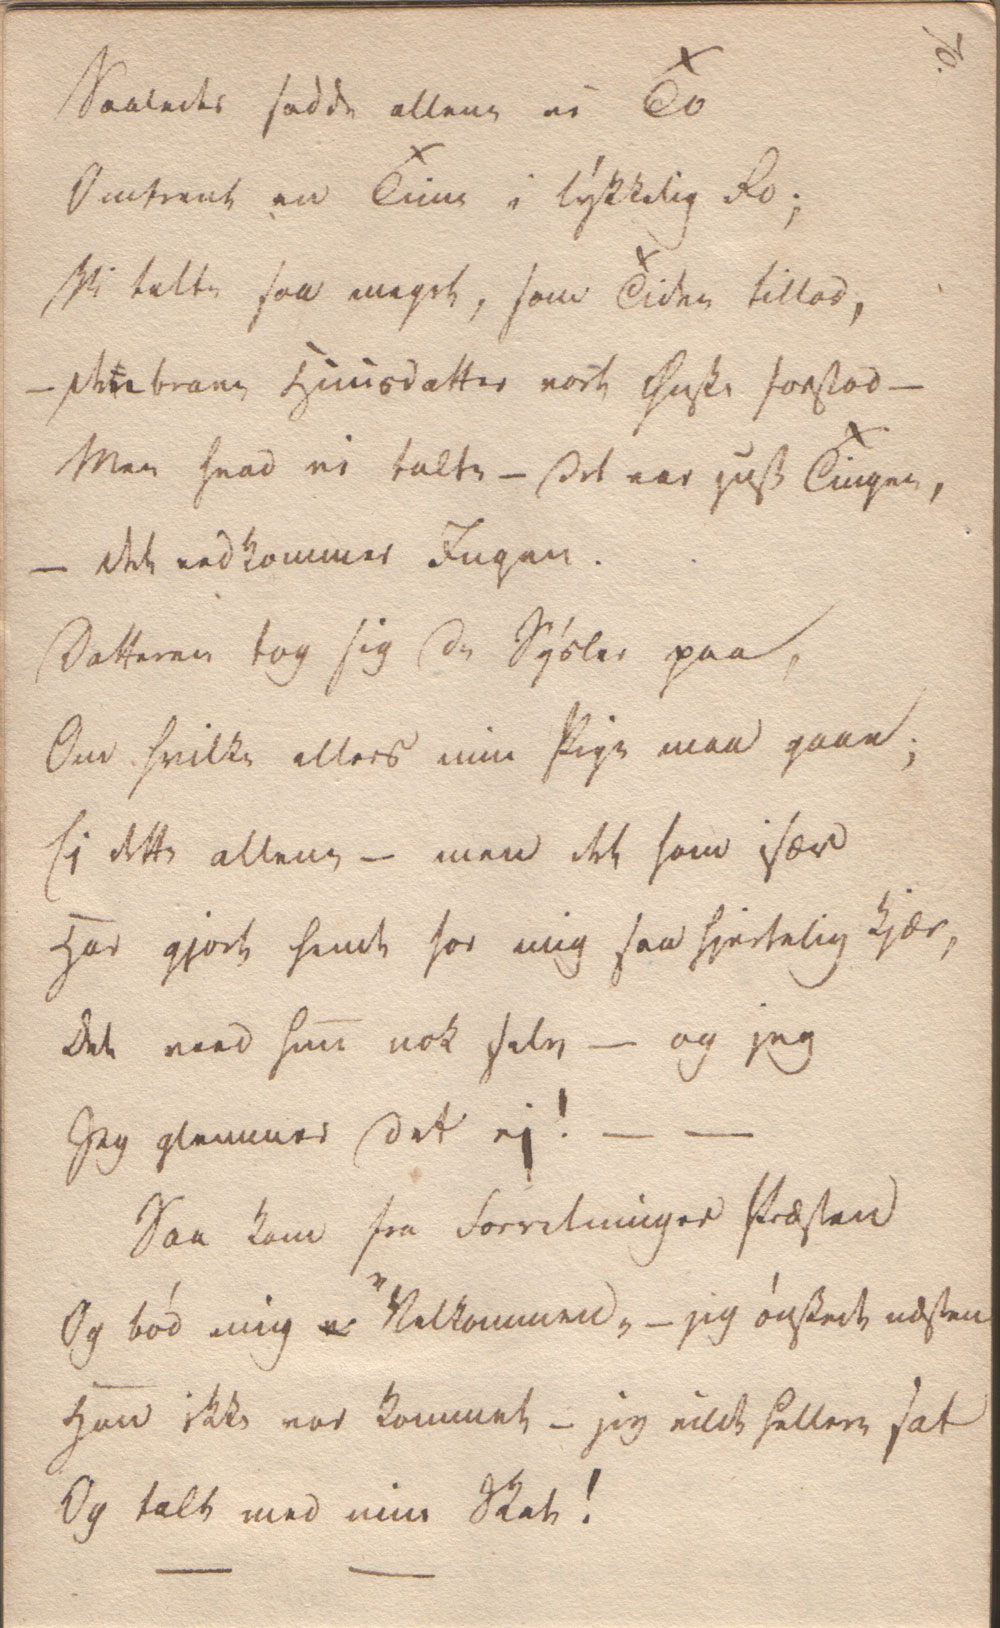 70.
Saaledes sadde allene vi To
Omtrent en Time i lykkelig Ro;
Vi talte saa meget, som Tiden tillod,
– den brave Huusdatter vort Ønske forstod –
Men hvad vi talte – det var just Tingen,
– det vedkommer Ingen.
Datteren tog sig de Sysler paa,
Om hvilke ellers min Pige maa gaae;
Ei dette allene – men det som især
Har gjort hende for mig saa hjertelig kjær,
Det veed hun nok selv – og jeg
Jeg glemmer det ej! — —
Saa kom fra Forretninger Præsten
Og bød mig "Velkommen" – jeg ønskede næsten
Han ikke var kommet – jeg vilde hellere sat
Og talt med min Skat!